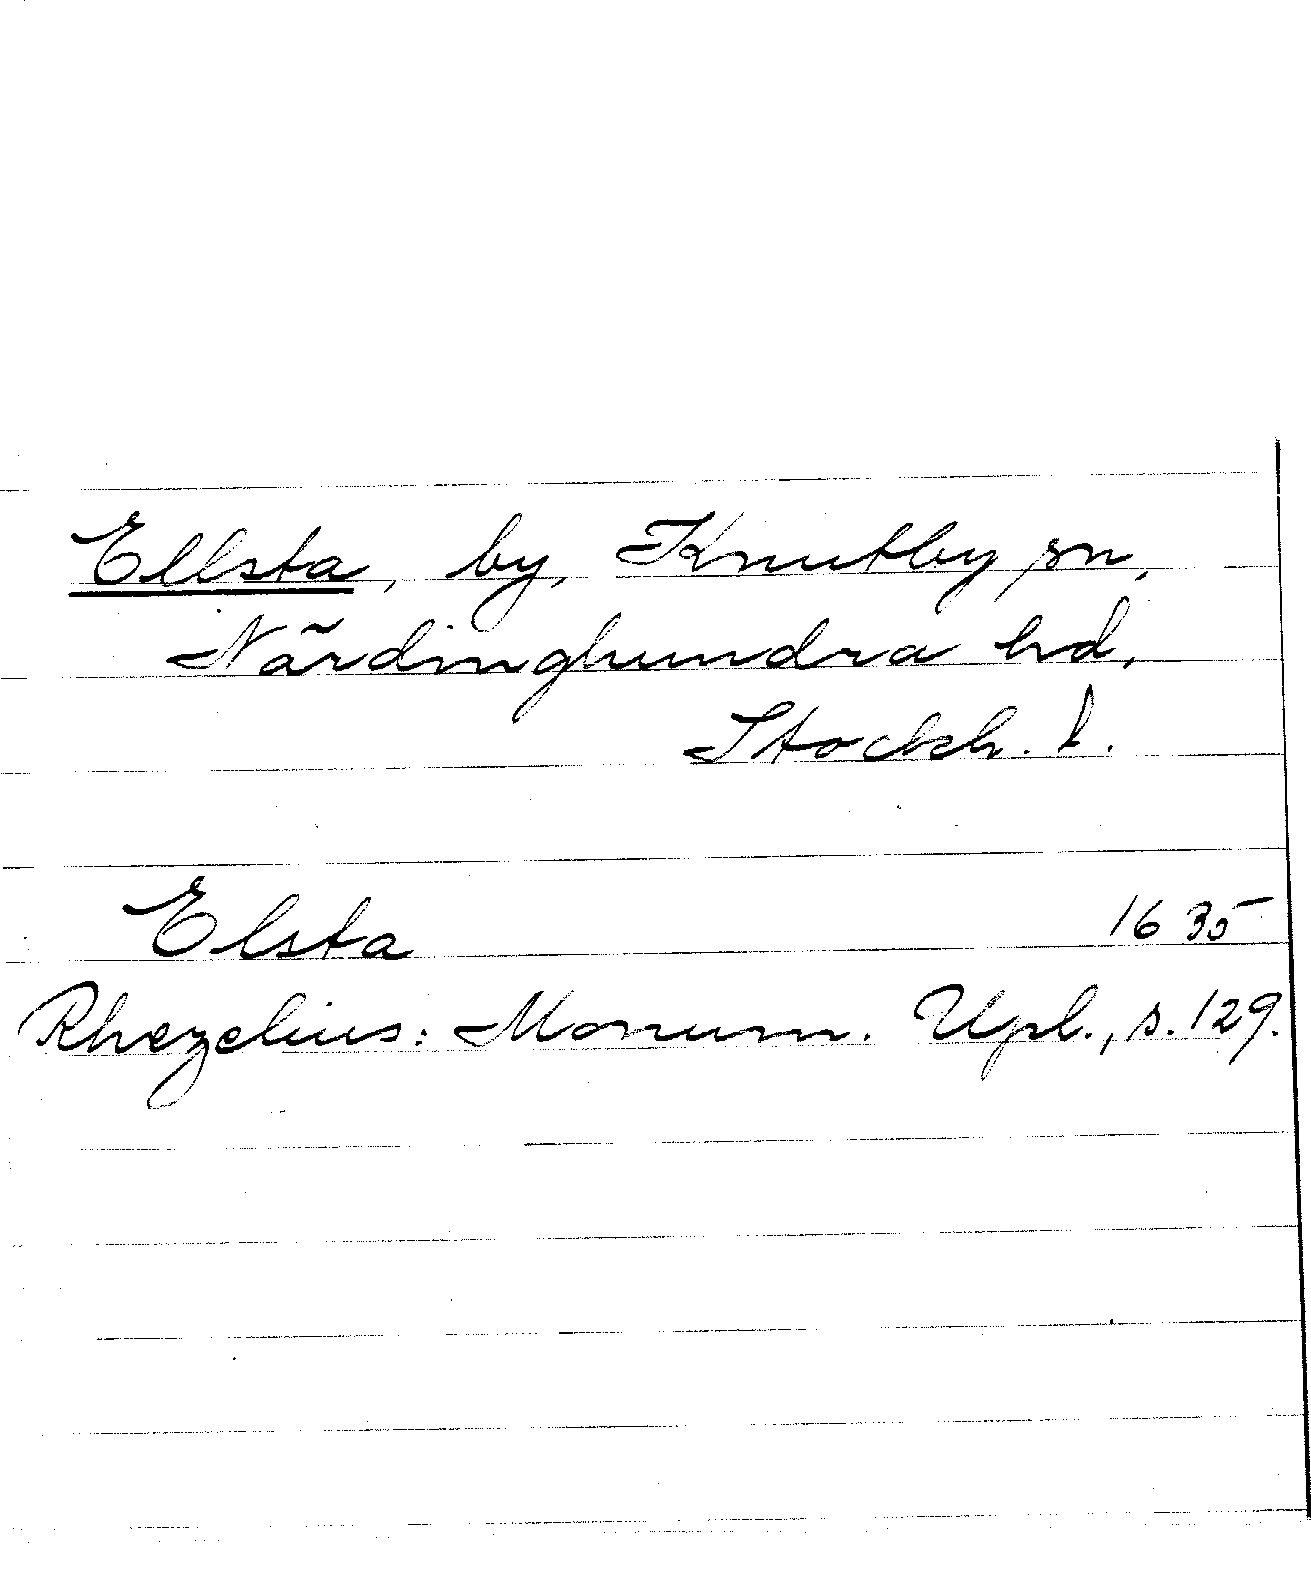 Ellsta, by, Knutby sn,
Närdinghundra hd,
Stockh. l.
Elsta 1635
Rhezelius: Monum. Upl., s. 129.